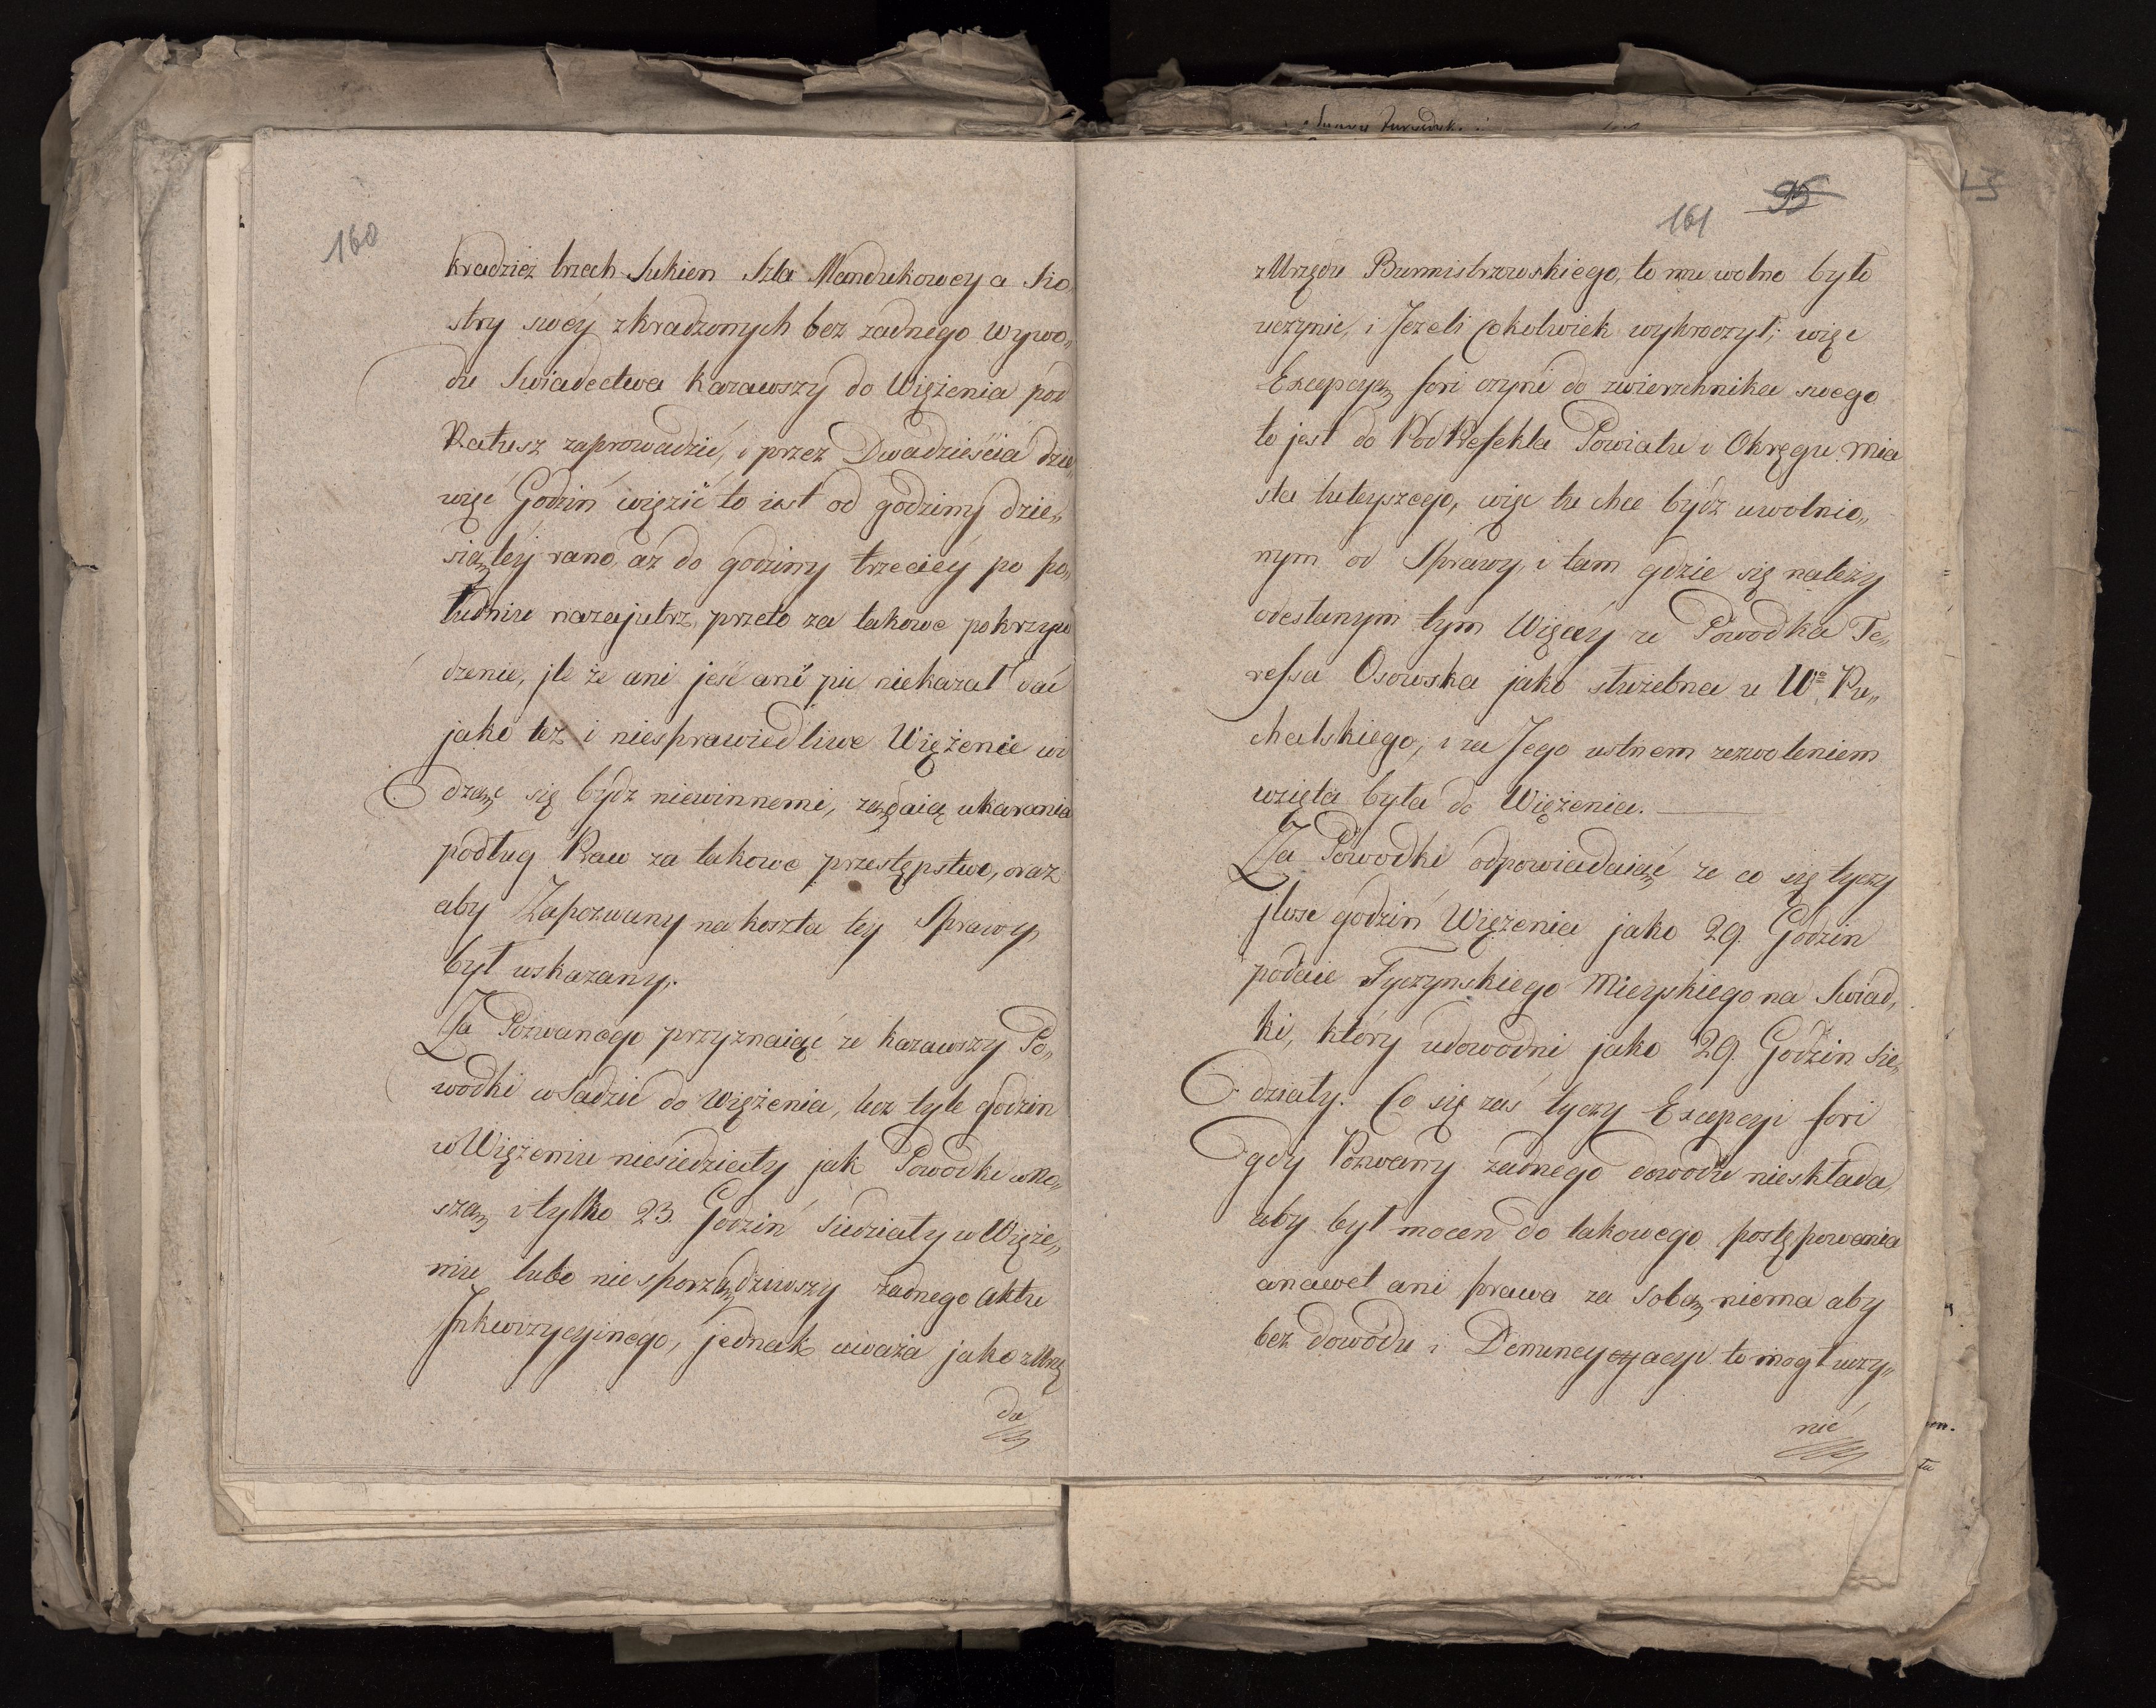 160
kradzież trzech Sukien Szla Mandukowey a Sio„
stry swéy zkradzonych bez zadnego wywo„
du Swiadectwa kazawszy do Więzienia pod
Ratusz zaprowadzić, i przez Dwadzieścia dzie„
więć Godzin więzić to iest od godziny dzie„
siątéy rano, aż do godziny trzeciéy po po„
łudniu nazajutrz, przeto za takowe pokrzyw
dzenie, jle że ani jeść ani pić niekazał dać
jako też i niesprawiedliwe Więzienie wi
dząc się bydz niewinnemi, ządaią ukarania
podług Praw za takowe przestępstwo, oraz
aby Zapozwany na koszta tey Sprawy
był wskazany.
Za Pozwanego przyznaiąc ze kazawszy Po„
wodki wsadzić do Więzienia, lecz tyle godzin
w Więzieniu niesiedziały jak Powodki wno„
szą i tylko 23. Godzin Siedziały w Więzie„
niu, lubo niesporządziwszy żadnego aktu
Jnkwizycyinego, jednak uważa jako z Urzę
du
161
95
z Urzędu Burmistrzowskiego, to mu wolno było
uczynić, i Jezeli cokolwiek wykroczył; więc
Excepcyą fori czyni do zwierzchnika swego
to jest do PodPrefekta Powiatu i Okręgu Mia
sta tuteyszego, więc tu chce bydź uwolnio„
nym od Sprawy, i tam gdzie się należy
odesłanym tym Więcéy ze Powodka Te„
ressa Osowska jako służebna u Wo Pu„
chalskiego, i za Jego ustnem zezwoleniem
wzięta była do Więzienia.
Za Powodki odpowiadaiąc ze co się tyczy
jlosc godzin Więzienia jako 29. Godzin
podaie Tyczynskiego Mieyskiego na Swiad„
ki, który udowodni jako 29. Godzin Sie„
działy. Co się zaś tyczy Excepcyi fori
gdy Pozwany zadnego dowodu nieskłada,
aby był mocen do takowego postępowania
a nawet ani prawa za sobą niema aby
bez dowodu i Denuncyacyi to mogł uczy„
nić